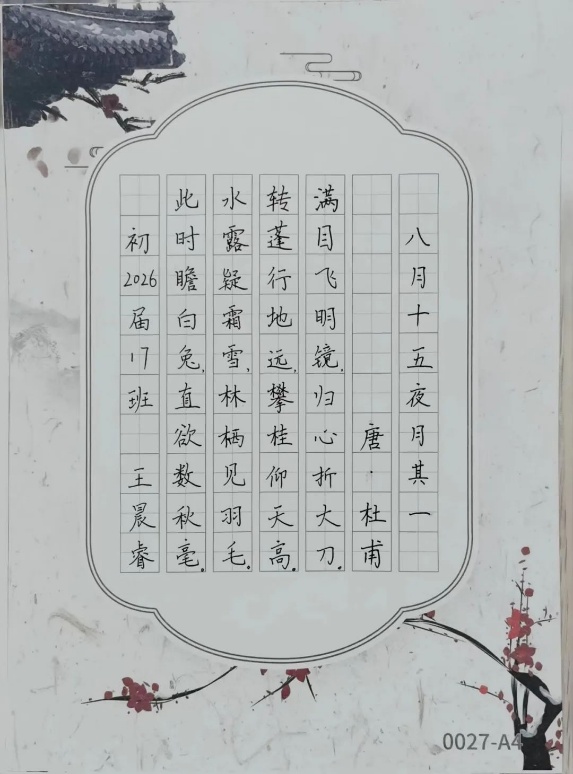 八月十五夜月其一
唐·杜甫
满目飞明镜,归心折大刀。
转蓬行地远,攀桂仰天高。
水露疑霜雪,林栖见羽毛。
此时瞻白兔,直欲数秋毫。
初2026届17班 王晨睿
0027-A4